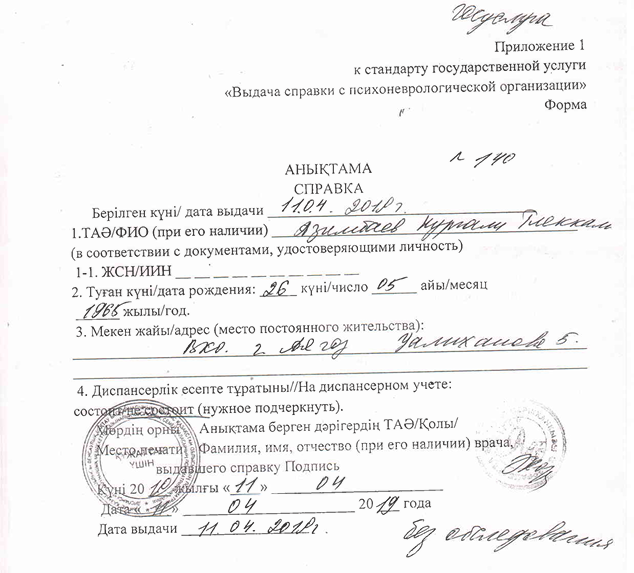 Госуслуга
Приложение 1
к стандарту государственной услуги
«Выдача справки с психоневрологической организации»
Форма
№ 140
АНЫҚТАМА
СПРАВКА
Берілген күні/ дата выдачи 11.04. 2019 г.
1.ТАӘ/ФИО (при его наличии) Азимбаев Нургали
(в соответствии с документами, удостоверяющими личность)
1-1. ЖСН/ИИН _ _ _ _ _ _ _ _ _ _ _ _
2. Туған күні/дата рождения: 26 күні/число 05 айы/месяц
1965 жылы/год.
3. Мекен жайы/адрес (место постоянного жительства):
ВКО. г Аягоз Уалиханова 5.
4. Диспансерлік есепте тұратыны//На диспансерном учете:
состоит/не состоит (нужное подчеркнуть).
Мөрдің орны Анықтама берген дәрігердің ТАӘ/Қолы/
Место печати Фамилия, имя, отчество (при его наличии) врача,
выдавшего справку Подпись
ҮШІН
Күні 2019 жылғы « 11 » 04
Дата « 11 » 04 2019 года
Дата выдачи 11. 04. 2019г.
без обследования